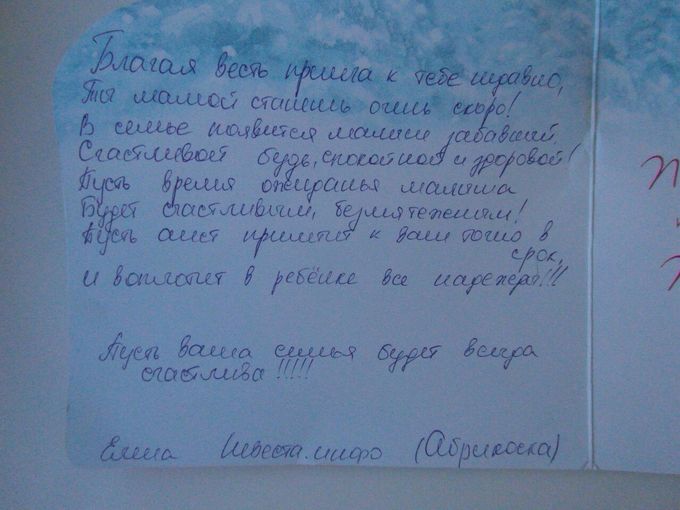 Благая весть пришла к тебе недавно,
Ты мамой станешь очень скоро!
В семье появится малыш забавный.
Счастливой будь, спокойной и здоровой!
Пусть время ожиданья малыша
Будет счастливым, безмятежным!
Пусть аист прилетит к вам точно в
срок,
и воплотит в ребёнке все надежды!!!
Пусть ваша семья будет всегда
счастлива!!!!!
Елина (Абрикоска)